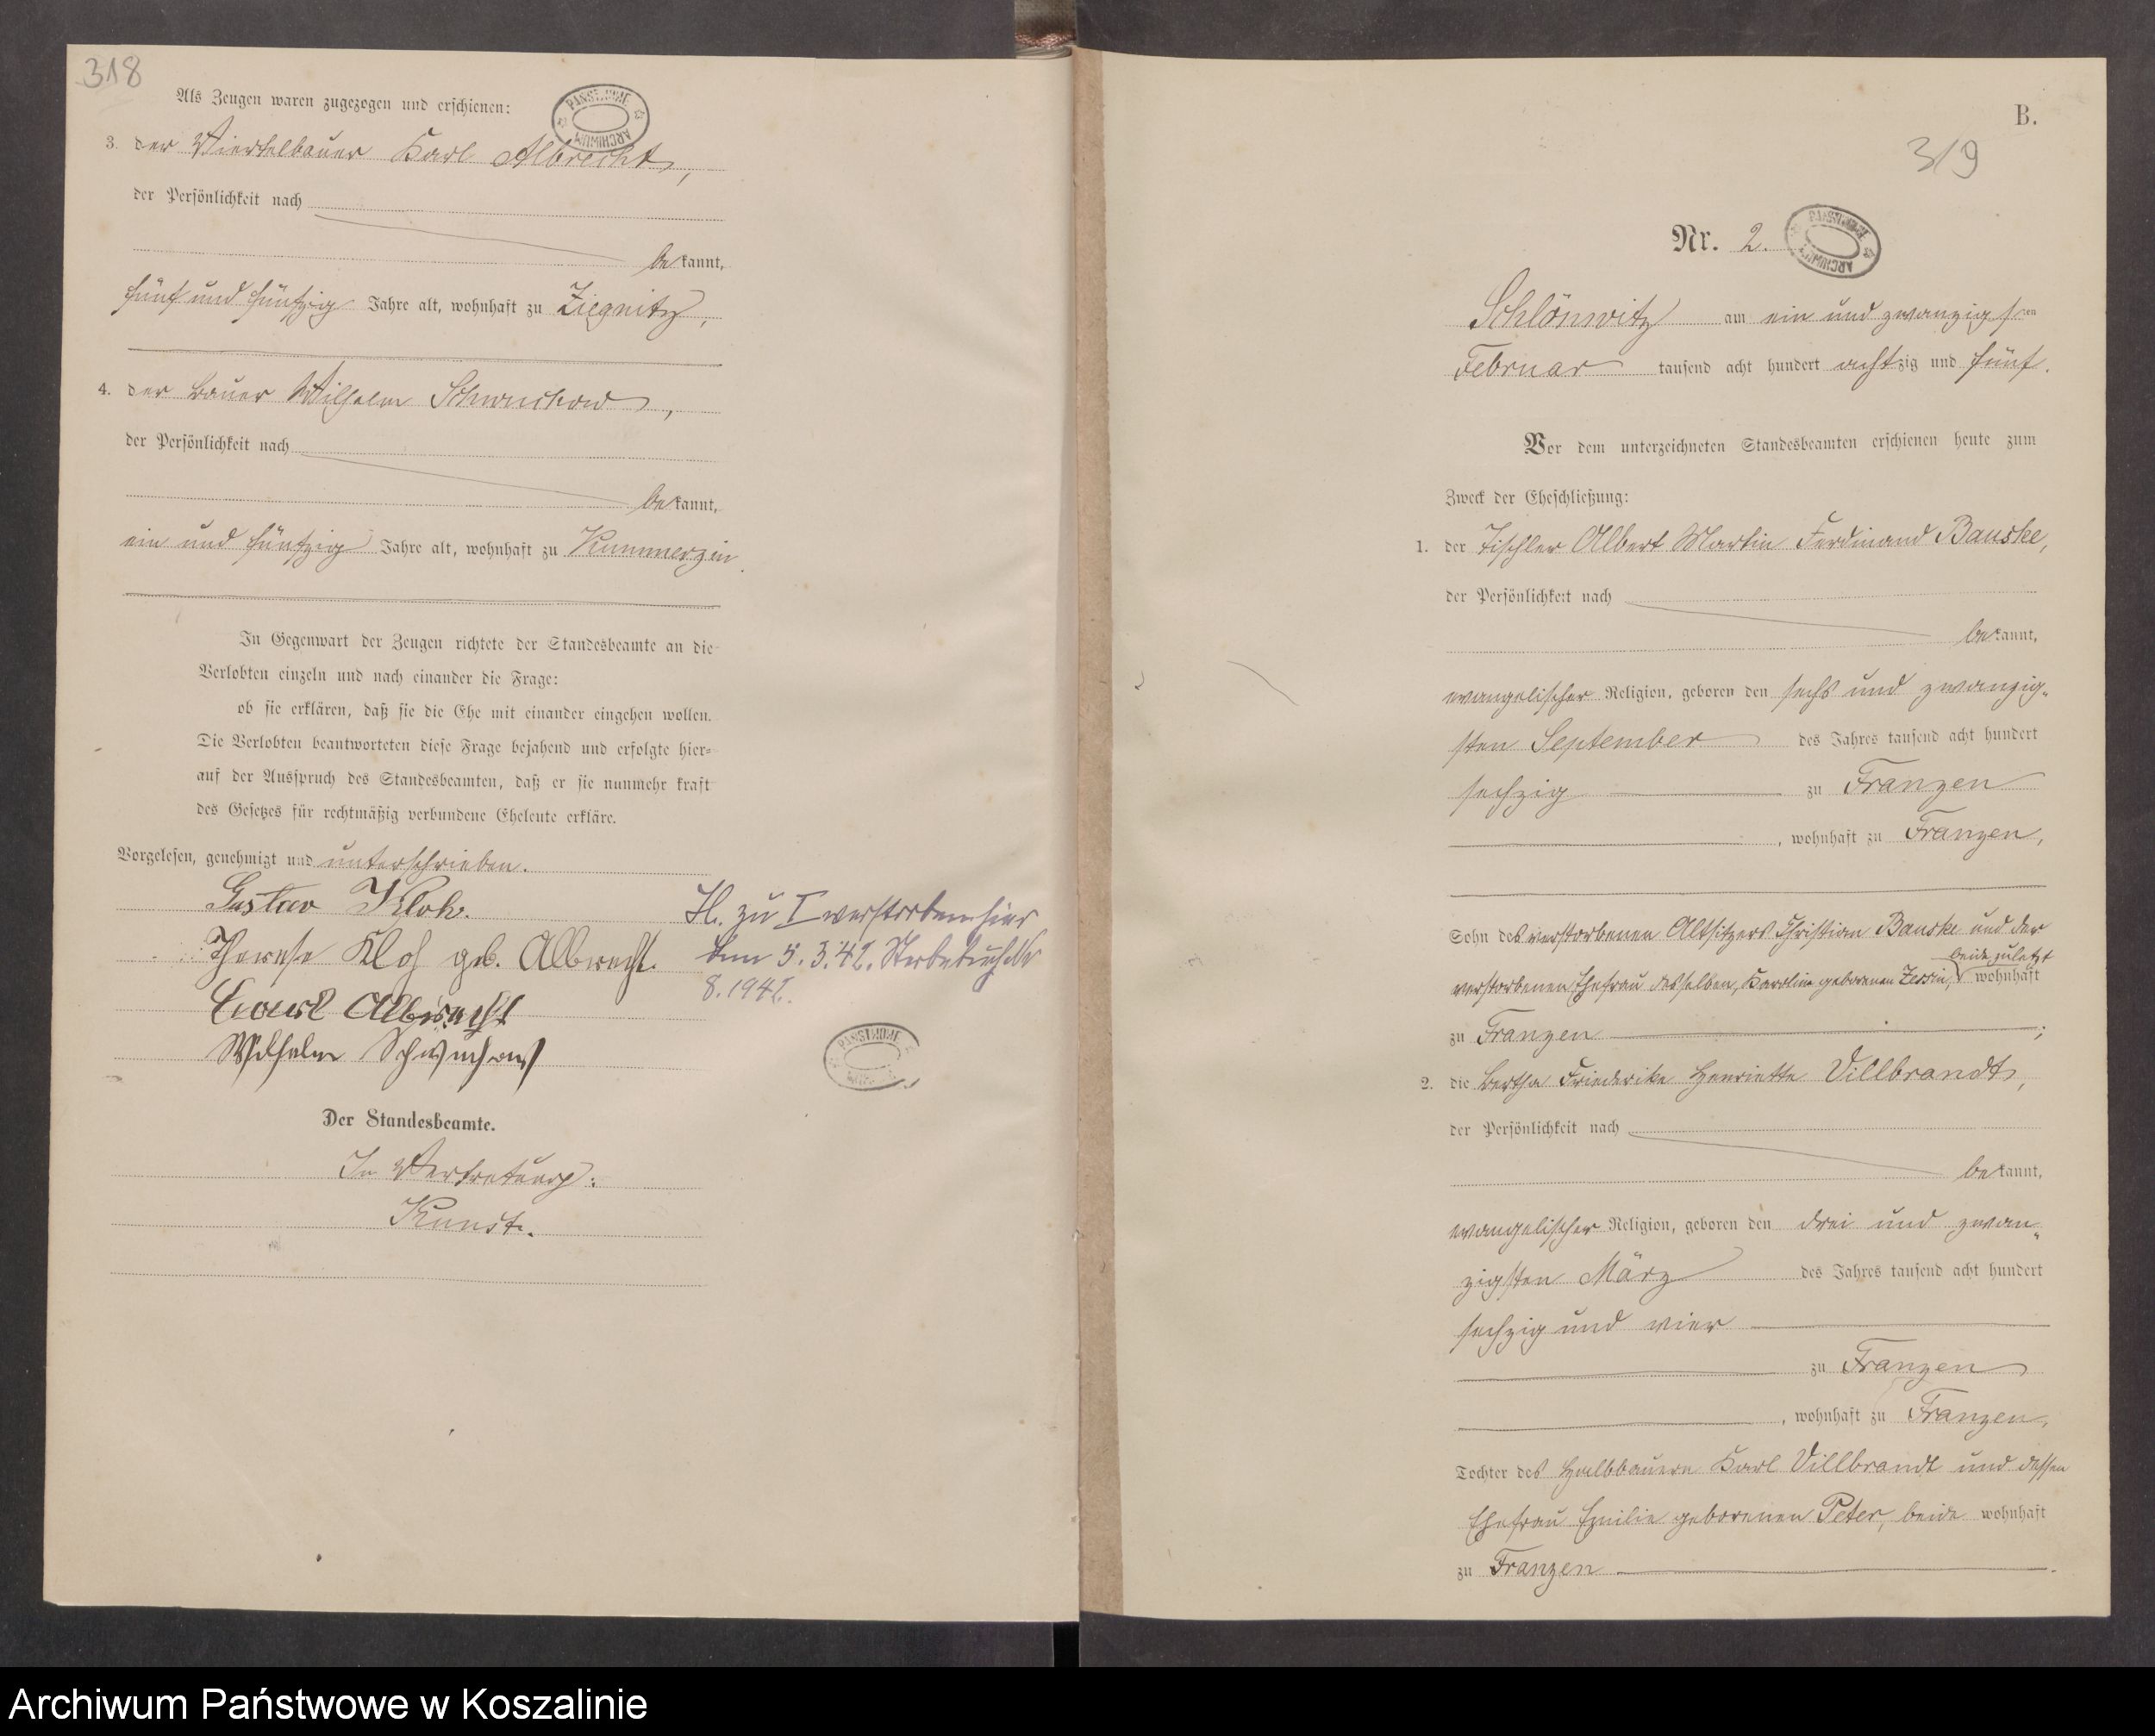 318
Als Zeugen waren zugezogen und erschienen:
PANSTWOWE ARCHIWUM
3. der Viertelbauer Karl Albrecht,
der Persönlichkeit nach
bekannt,
fünf und fünfzig Jahre alt, wohnhaft zu Ziegnitz,
4. der Bauer Wilhelm Schwuchow,
der Persönlichkeit nach
bekannt,
ein und fünfzig Jahre alt, wohnhaft zu Kummerzin.
In Gegenwart der Zeugen richtete der Standesbeamte an die
Verlobten einzeln und nach einander die Frage:
ob sie erklären, daß sie die Ehe mit einander eingehen wollen.
Die Verlobten beantworteten diese Frage bejahend und erfolgte hier-
auf der Ausspruch des Standesbeamten, daß er sie nunmehr kraft
des Gesetzes für rechtmäßig verbundene Eheleute erkläre.
Vorgelesen, genehmigt und unterschrieben.
Gustav Kloh.
Therese Kloh geb. Albrecht.
Albrecht
Wilhelm Schwuchow
H. zu I verstorben hier
den 5.3.41. Sterbebuch Nr
8.1941.
PANSTWOWE
Der Standesbeamte.
In Vertretung:
Kunst.
B.
319
Nr. 2.
PANSTWOWE ARCHIWUM
Schlönwitz am ein und zwanzigsten
Februar tausend acht hundert achtzig und fünf.
Vor dem unterzeichneten Standesbeamten erschienen heute zum
Zweck der Eheschließung:
1. der Tischler Albert Martin Ferdinand Bauske,
der Persönlichkeit nach
bekannt,
evangelischer Religion, geboren den sechs und zwanzig-
sten September des Jahres tausend acht hundert
sechzig zu Franzen
, wohnhaft zu Franzen,
Sohn des verstorbenen Altsitzers Christian Bauske und der
beide zuletzt
verstorbenen Ehefrau desselben, Karoline geborenen Zessin, wohnhaft
zu Franzen ;
2. die Bertha Friederike Henriette Villbrandt,
der Persönlichkeit nach
bekannt,
evangelischer Religion, geboren den drei und zwan-
zigsten März des Jahres tausend acht hundert
sechzig und vier
zu Franzen
, wohnhaft zu Franzen,
Tochter des Halbbauern Karl Villbrandt und dessen
Ehefrau Emilie geborenen Peter, beide wohnhaft
zu Franzen .
Archiwum Państwowe w Koszalinie